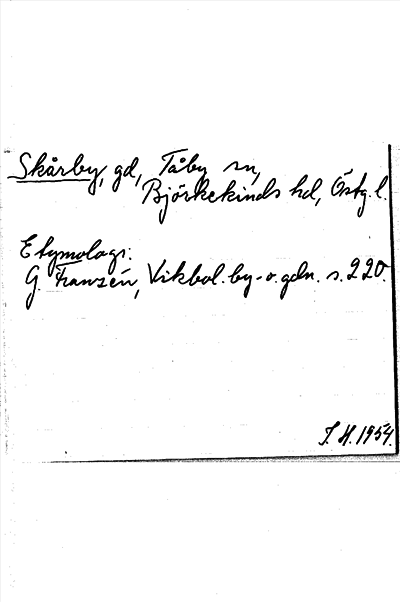 Skårby, gd, Tåby sn,
Björkekinds hd, Östg. l.
Etymologi:
G. Franzén, Vikbol. by- o. gdn. s. 220.
I. H. 1954.